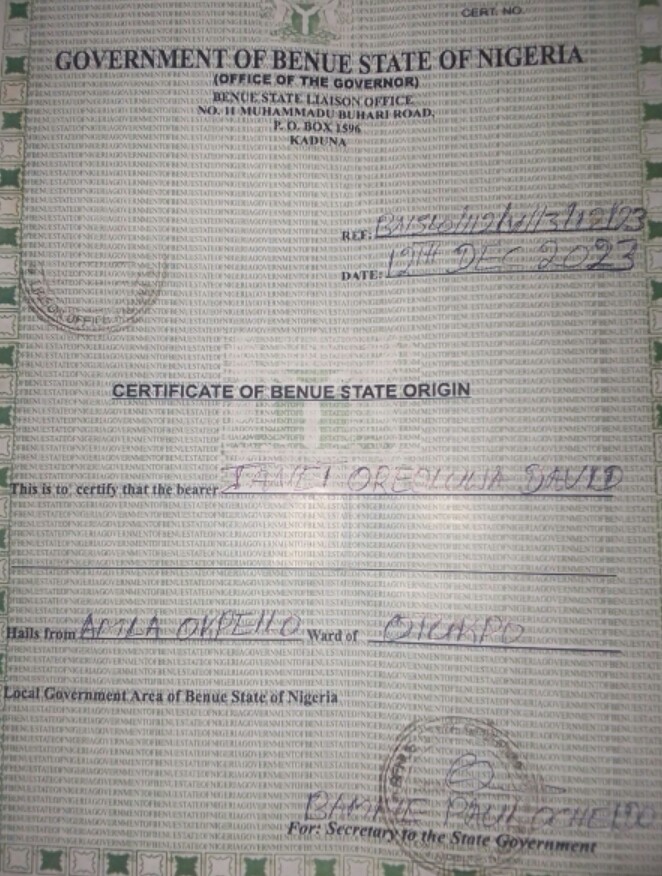 CERT. NO.
GOVERNMENT OF BENUE STATE OF NIGERIA
(OFFICE OF THE GOVERNOR)
BENUE STATE LIAISON OFFICE
NO. 11 MUHAMMADU BUHARI ROAD,
P. O. BOX 1596
KADUNA
REF:
DATE: 12TH DEC 2023
LIAISON OFFICE
CERTIFICATE OF BENUE STATE ORIGIN
This is to certify that the bearer JANET OREOLUWA DAVID
Hails from AMLA Ward of OTUKPO
Local Government Area of Benue State of Nigeria
PAUL
For: Secretary to the State Government